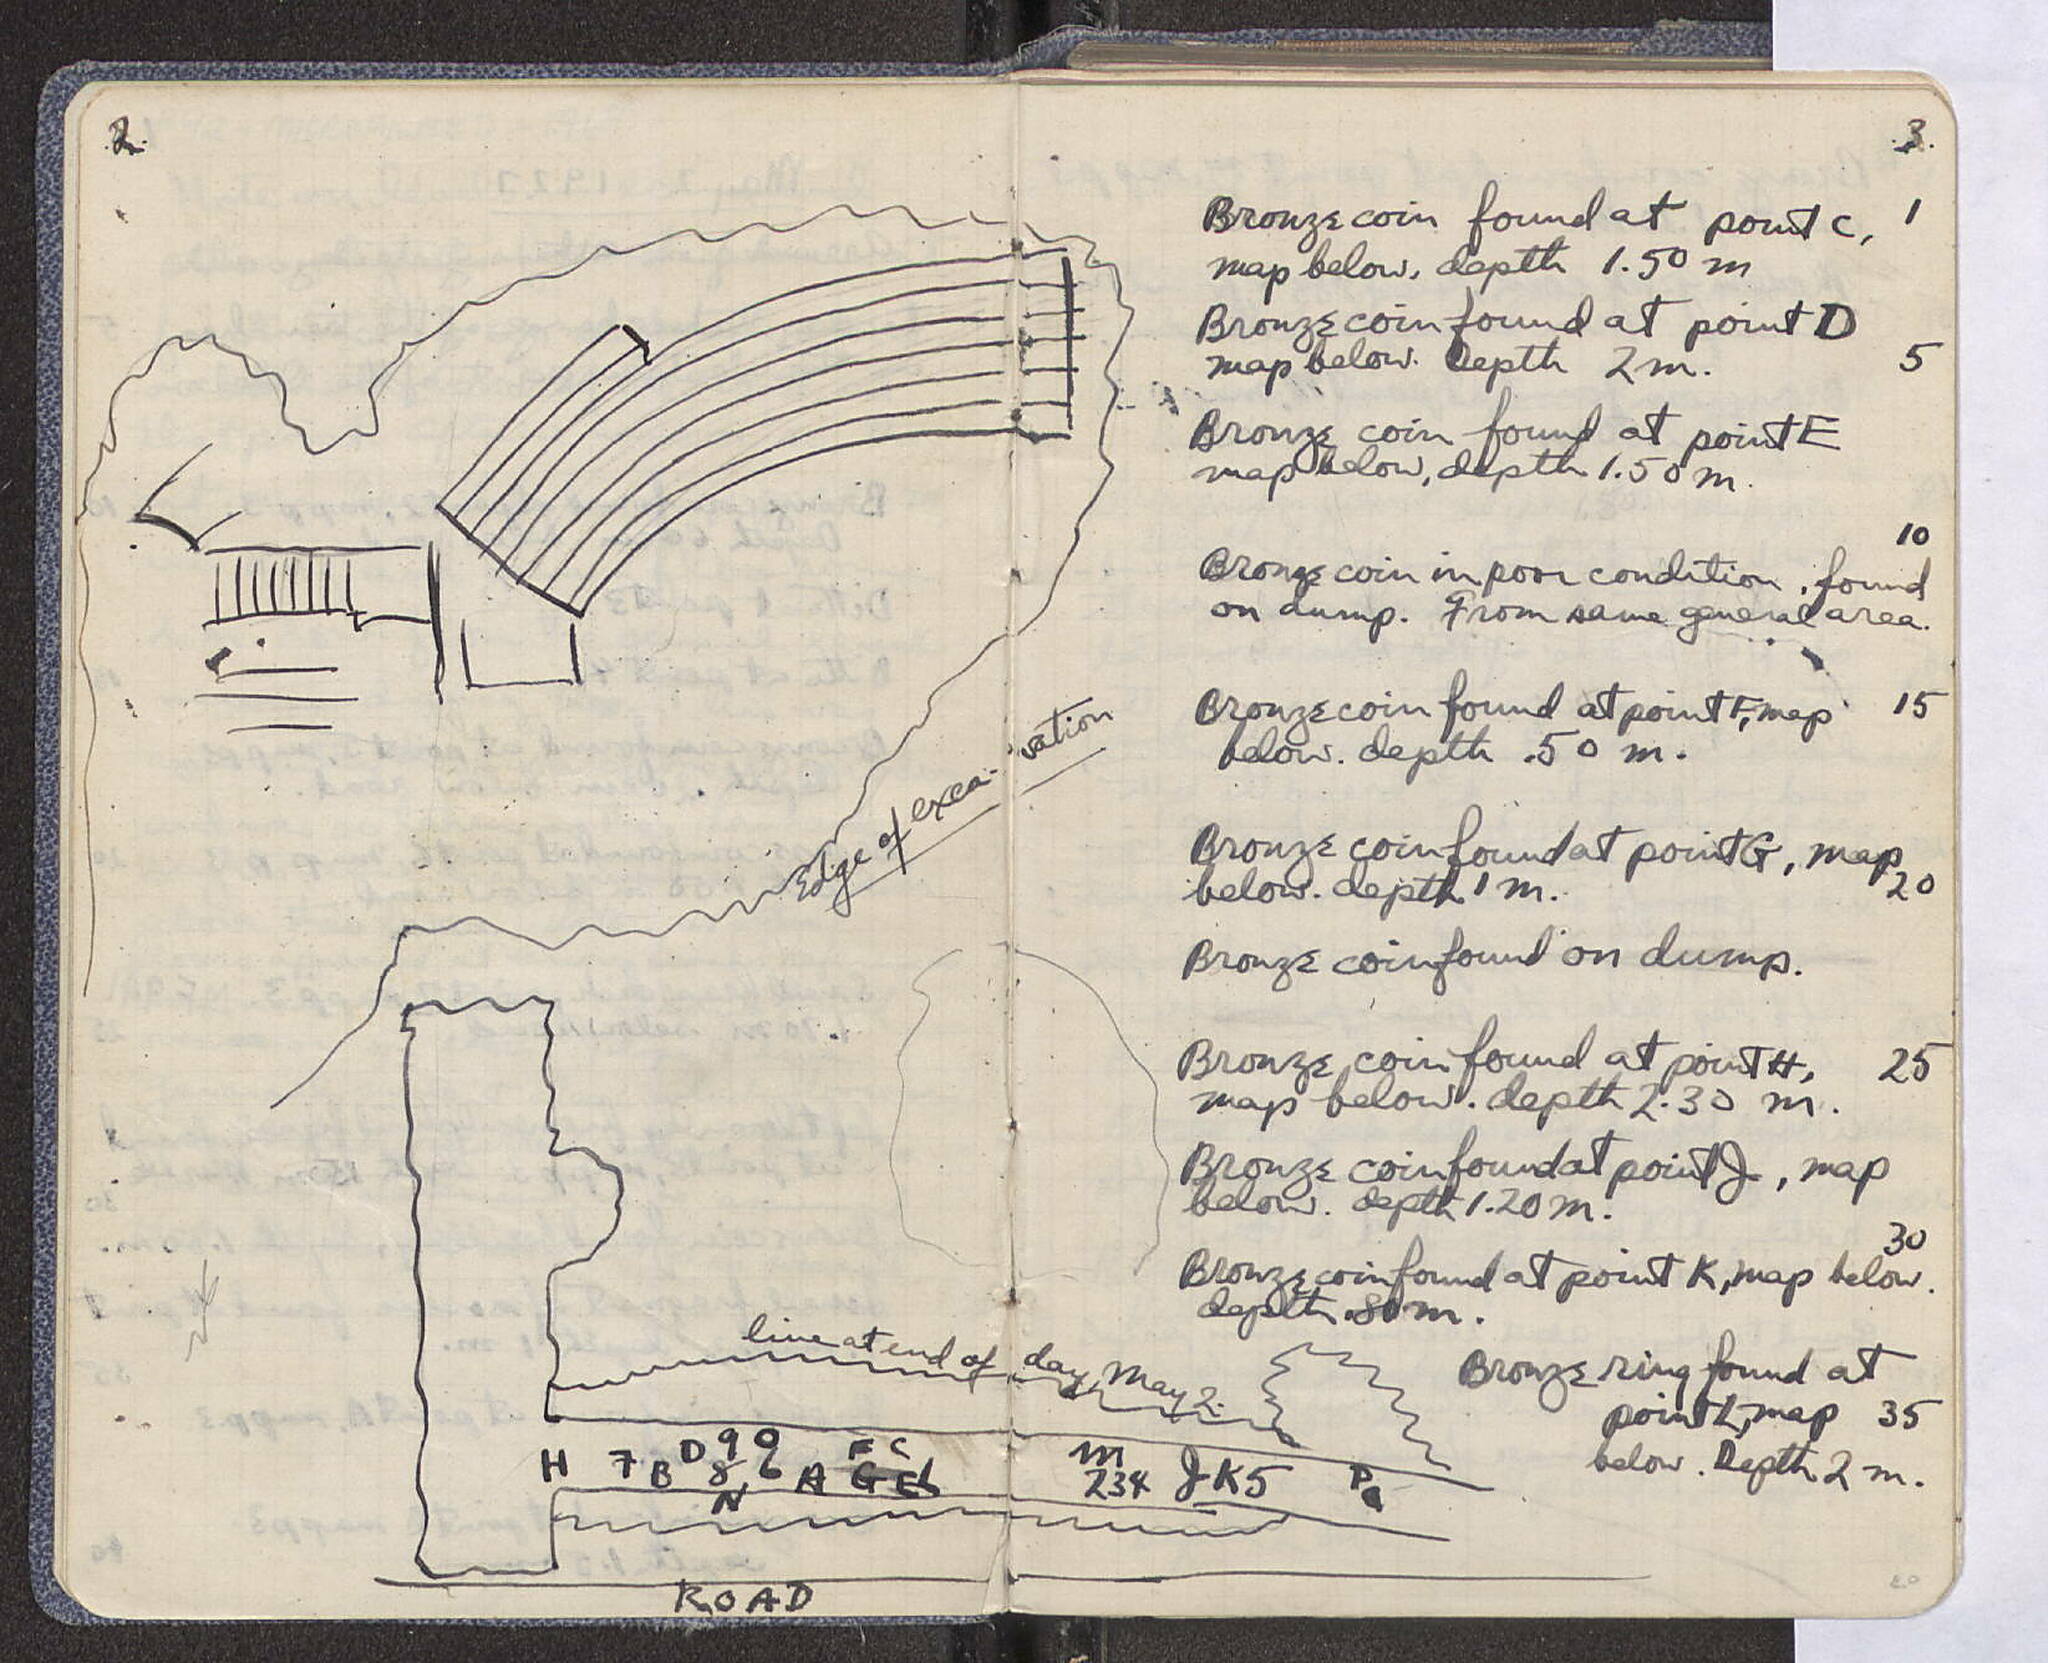 2.
Edge of exca-vation
line at end of day May 2.
H 7 B D 9 0
8 6 A F C
G E L
N
M
234 J K 5 P
ROAD
3.
Bronze coin found at point C, 1
map below. depth 1.50 m
Bronze coin found at point D
map below. Depth 2 m. 5
Bronze coin found at point E
map below, depth 1.50 m.
10
Bronze coin in poor condition, found
on dump. From same general area.
Bronze coin found at point F, map 15
below. depth .50 m.
Bronze coin found at point G, map
below. depth 1 m. 20
Bronze coin found on dump.
Bronze coin found at point H, 25
map below. depth 2.30 m.
Bronze coin found at point J, map
below. depth 1.20 m.
30
Bronze coin found at point K, map below.
depth .80 m.
Bronze ring found at
point L, map 35
below. Depth 2 m.